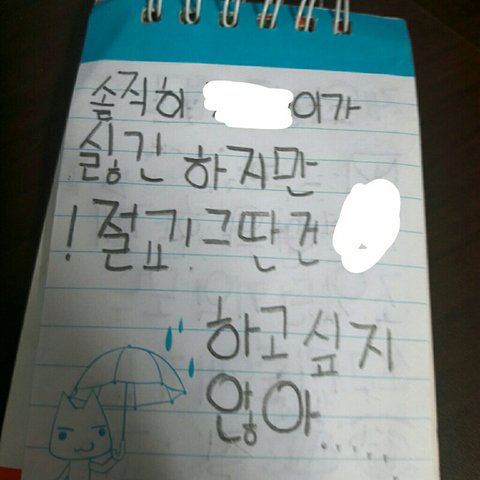 솔직히 이가
싫긴 하지만
! 절교! 그딴건
하고싶지
않아.....